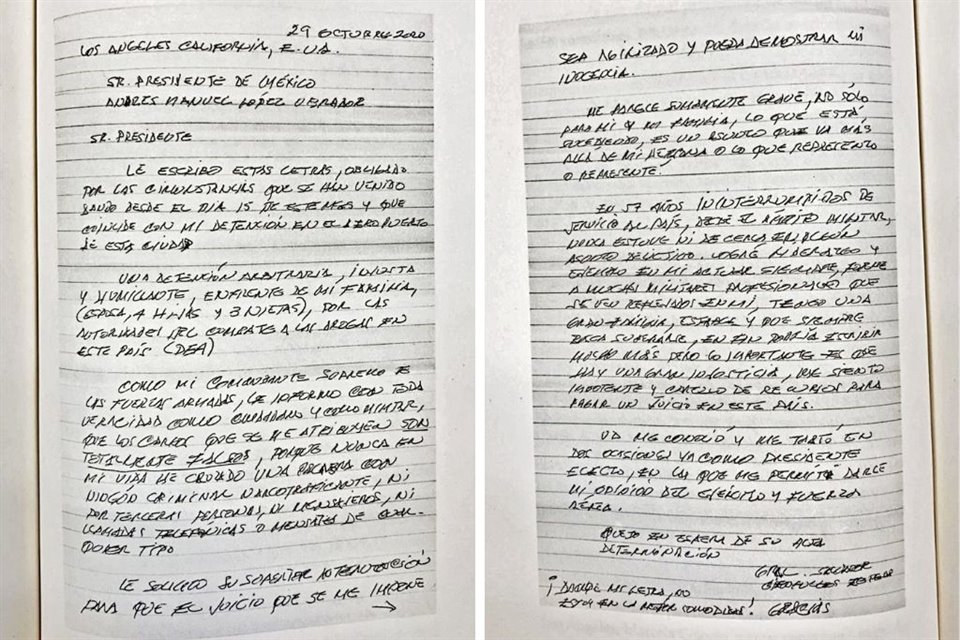 29 OCTUBRE 2020
LOS ANGELES CALIFORNIA, E.UA.
SR. PRESIDENTE DE MÉXICO
ANDRES MANUEL LÓPEZ OBRADOR
SR. PRESIDENTE
LE ESCRIBO ESTAS LETRAS, OBLIGADO
POR LAS CIRCUNSTANCIAS QUE SE HAN VENIDO
DANDO DESDE EL DIA 15 DE ESTE MES Y QUE
COINCIDE CON MI DETENCIÓN EN EL AEROPUERTO
DE ESTA CIUDAD
UNA DETENCIÓN ARBITRARIA, INJUSTA
Y HUMILLANTE, ENFRENTE DE MI FAMILIA,
(ESPOSA, 4 HIJAS Y 3 NIETAS), POR LAS
AUTORIDADES DEL COMBATE A LAS DROGAS EN
ESTE PAÍS (DEA)
COMO MI COMANDANTE SUPREMO DE
LAS FUERZAS ARMADAS, LE INFORMO CON TODA
VERACIDAD COMO CIUDADANO Y COMO MILITAR,
QUE LOS CARGOS QUE SE ME ATRIBUYEN SON
TOTALMENTE FALSOS, PORQUE NUNCA EN
MI VIDA HE CRUZADO UNA PALABRA CON
NINGÚN CRIMINAL NARCOTRAFICANTE, NI
POR TERCERAS PERSONAS, NI MENSAJEROS, NI
LLAMADAS TELEFÓNICAS O MENSAJES DE CUAL-
QUIER TIPO
LE SOLICITO SU SUPERIOR INTERVENCIÓN
PARA QUE EL JUICIO QUE SE ME IMPONE →
SEA AGILIZADO Y PUEDA DEMOSTRAR MI
INOCENCIA.
ME PARECE SUMAMENTE GRAVE, NO SÓLO
PARA MI Y MI FAMILIA, LO QUE ESTÁ
SUCEDIENDO, ES UN ASUNTO QUE VA MÁS
ALLÁ DE MI PERSONA O LO QUE REPRESENTO
O REPRESENTÉ.
EN 57 AÑOS ININTERRUMPIDOS DE
SERVICIO AL PAÍS, DESDE EL ÁMBITO MILITAR,
NUNCA ESTUVE NI DE CERCA EN ALGÚN
ASUNTO DELICTIVO. LOGRÉ LIDERAZGO Y
EJEMPLO EN MI ACTUAR SIEMPRE, FORMÉ
A MUCHOS MILITARES PROFESIONALES QUE
SE VEN REFLEJADOS EN MÍ, TENGO UNA
GRAN FAMILIA, ESTABLE Y QUE SIEMPRE
BUSCA SUPERARSE, EN FIN PODRÍA ESCRIBIR
MUCHO MÁS PERO LO IMPORTANTE ES QUE
HAY UNA GRAN INJUSTICIA, ME SIENTO
IMPOTENTE Y CAREZCO DE RECURSOS PARA
PAGAR UN JUICIO EN ESTE PAÍS.
UD ME CONOCIÓ Y ME TRATÓ EN
DOS OCASIONES YA COMO PRESIDENTE
ELECTO, EN LA QUE ME PERMITÍ DARLE
MI OPINIÓN DEL EJÉRCITO Y FUERZA
AEREA.
QUEDO EN ESPERA DE SU ALTA
DETERMINACIÓN
GRAL. SALVADOR
CIENFUEGOS ZEPEDA
¡DISCULPE MI LETRA, NO
ESTOY EN LA MEJOR COMODIDAD! GRACIAS